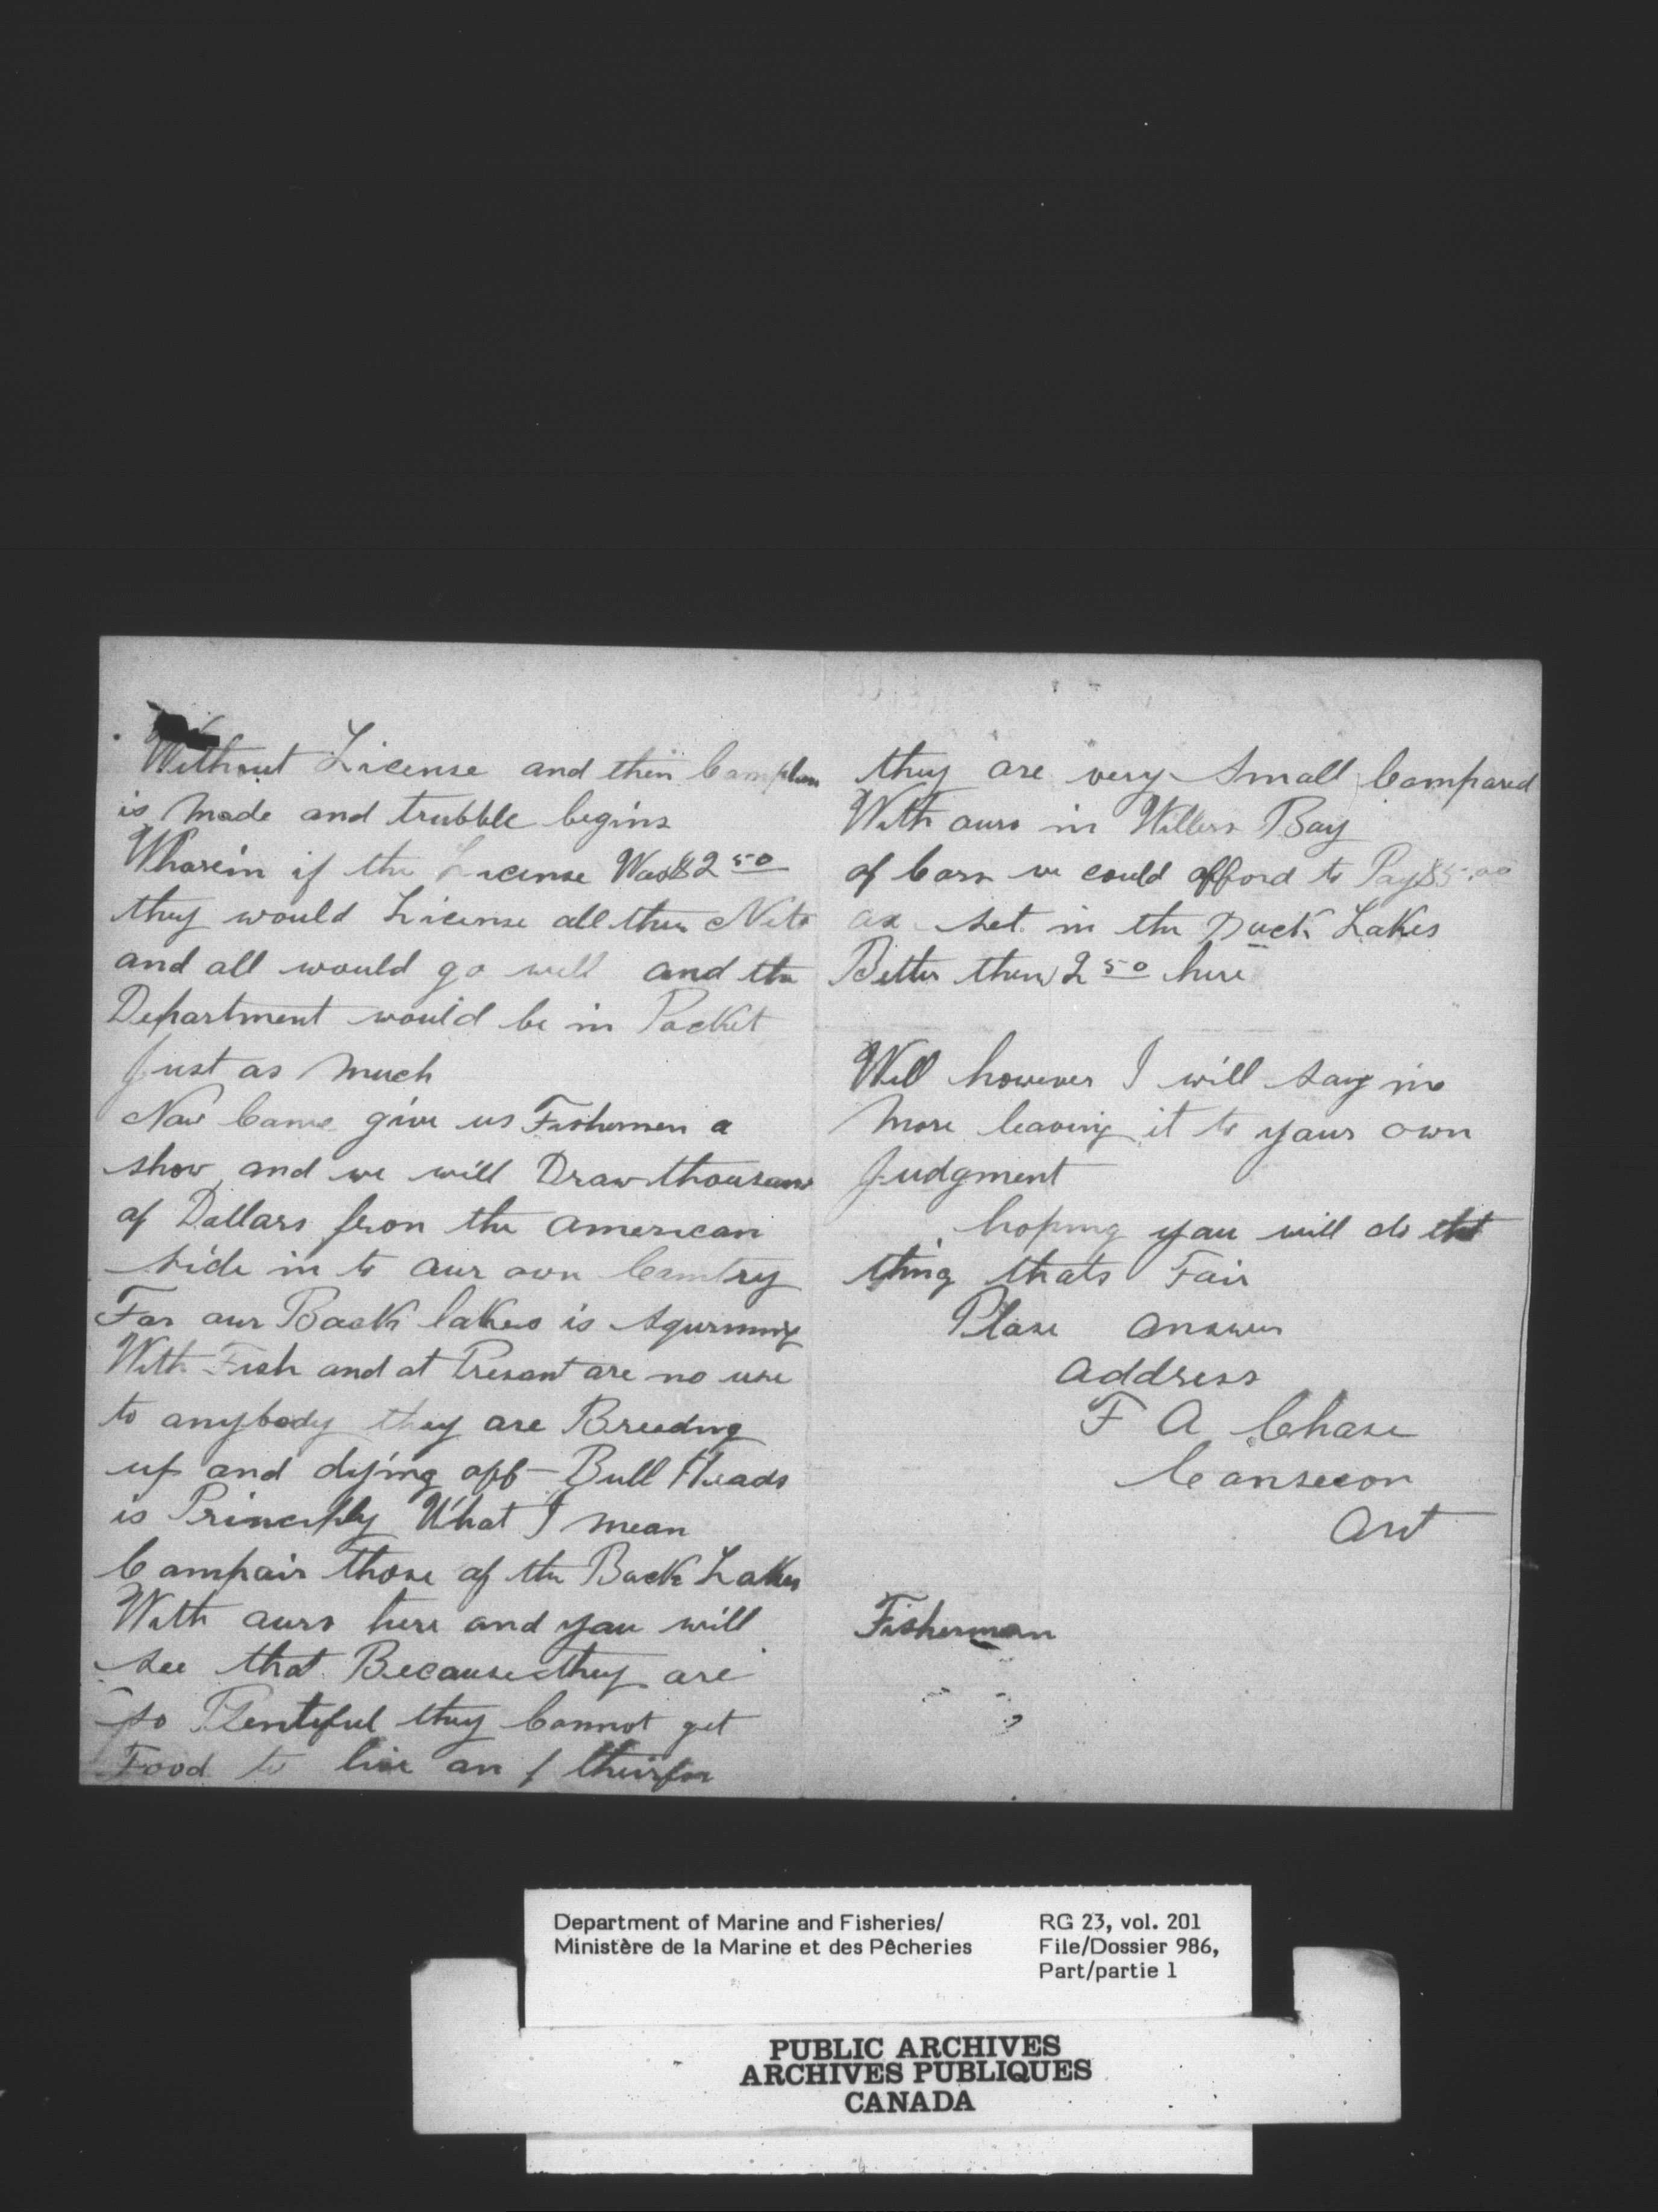 Without License and then Complain
is Made and trubble begins
Wharein if the License Was $2 50
they would License all their Nets
and all would go well and the
Department would be in Pocket
Just as Much
Now Come give us Fishermen a
show and we will Draw thousans
of Dollars from the American
side in to our own Contry
For our Back lakes is squrming
With Fish and at Presant are no use
to anybody they are Breeding
up and dying off - Bull Heads
is Principly What I mean
Compair those of the Back Lakes
With ours here and you will
see that Because they are
so Plentiful they Connot get
Food to live on & theirfor
they are very small Compared
With ours in Willers Bay
of Cors we could afford to Pay $5.00
as set in the Back Lakes
Better then 2 50 here
Well however I will say no
More leaving it to your own
Judgment
hoping you will do the
thing thats Fair
Plase answer
address
F A Chase
Consecon
Ont
Fisherman
Department of Marine and Fisheries/
Ministère de la Marine et des Pêcheries
RG 23, vol. 201
File/Dossier 986,
Part/partie 1
PUBLIC ARCHIVES
ARCHIVES PUBLIQUES
CANADA